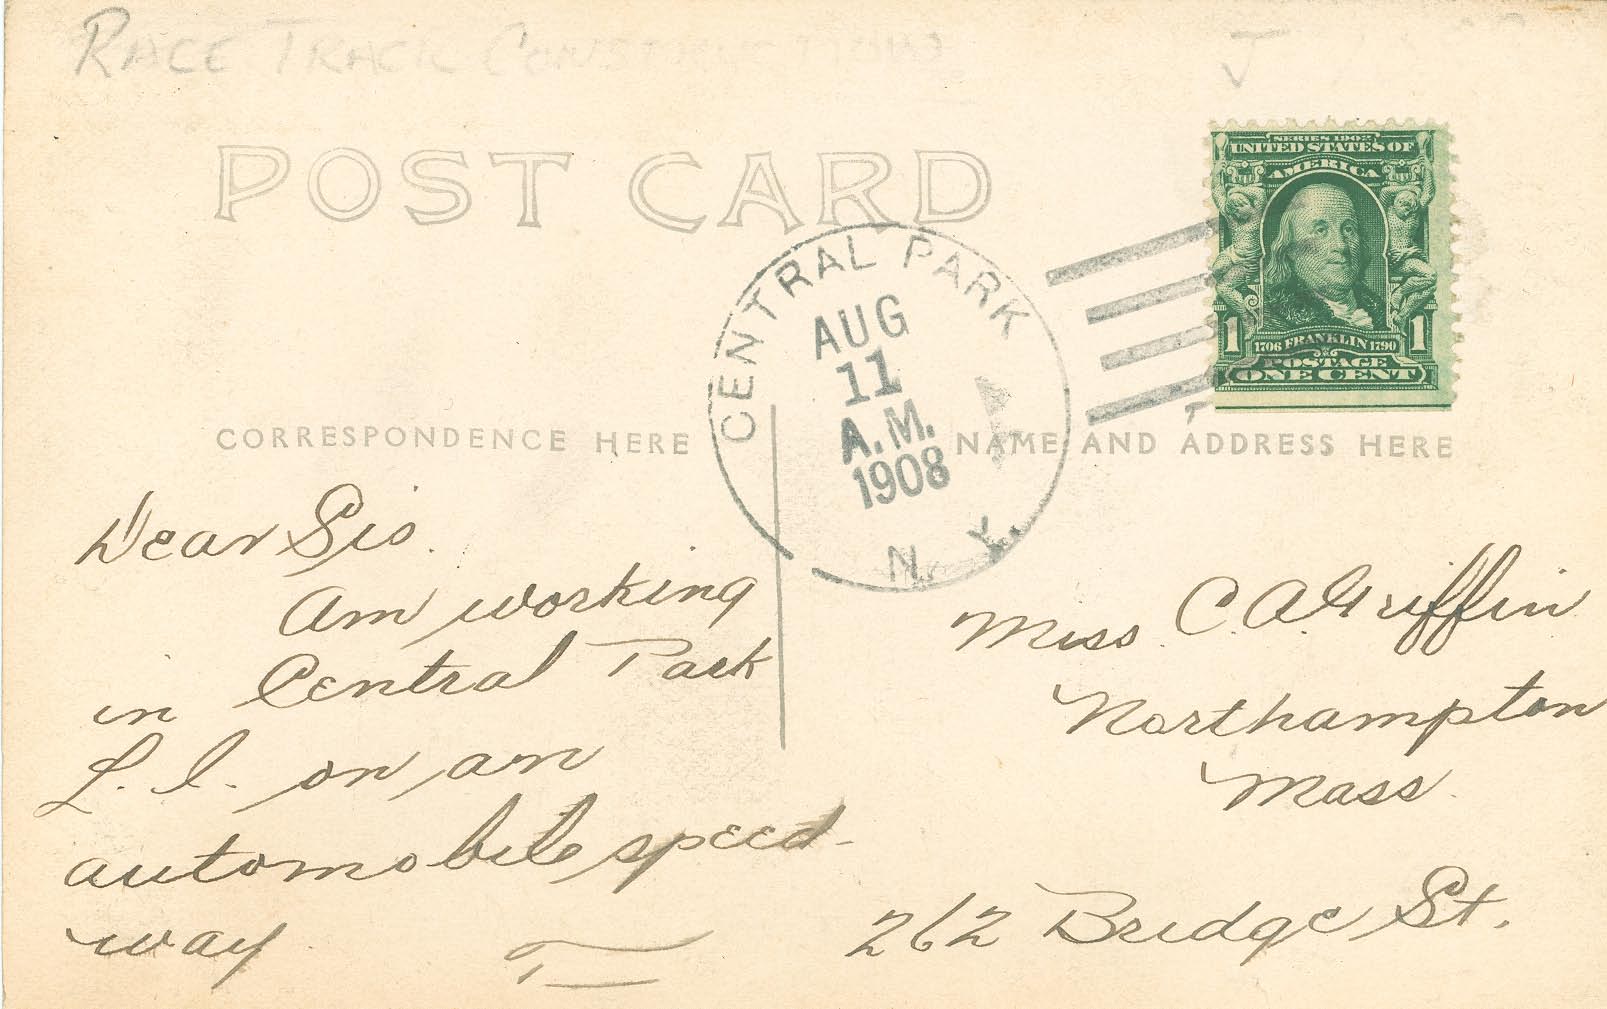 RACE TRACK CONSTRUCTION
J
POST CARD
SERIES 1902
UNITED STATES OF
AMERICA
1 1
1706 FRANKLIN 1790
POSTAGE
ONE CENT
CENTRAL PARK
AUG
11
A.M.
1908
N.Y.
CORRESPONDENCE HERE
NAME AND ADDRESS HERE
Dear Sis.
Am working
in Central Park
L. I. on an
automobile speed-
way
T
Miss C.A. Griffin
Northampton
Mass.
262 Bridge St.